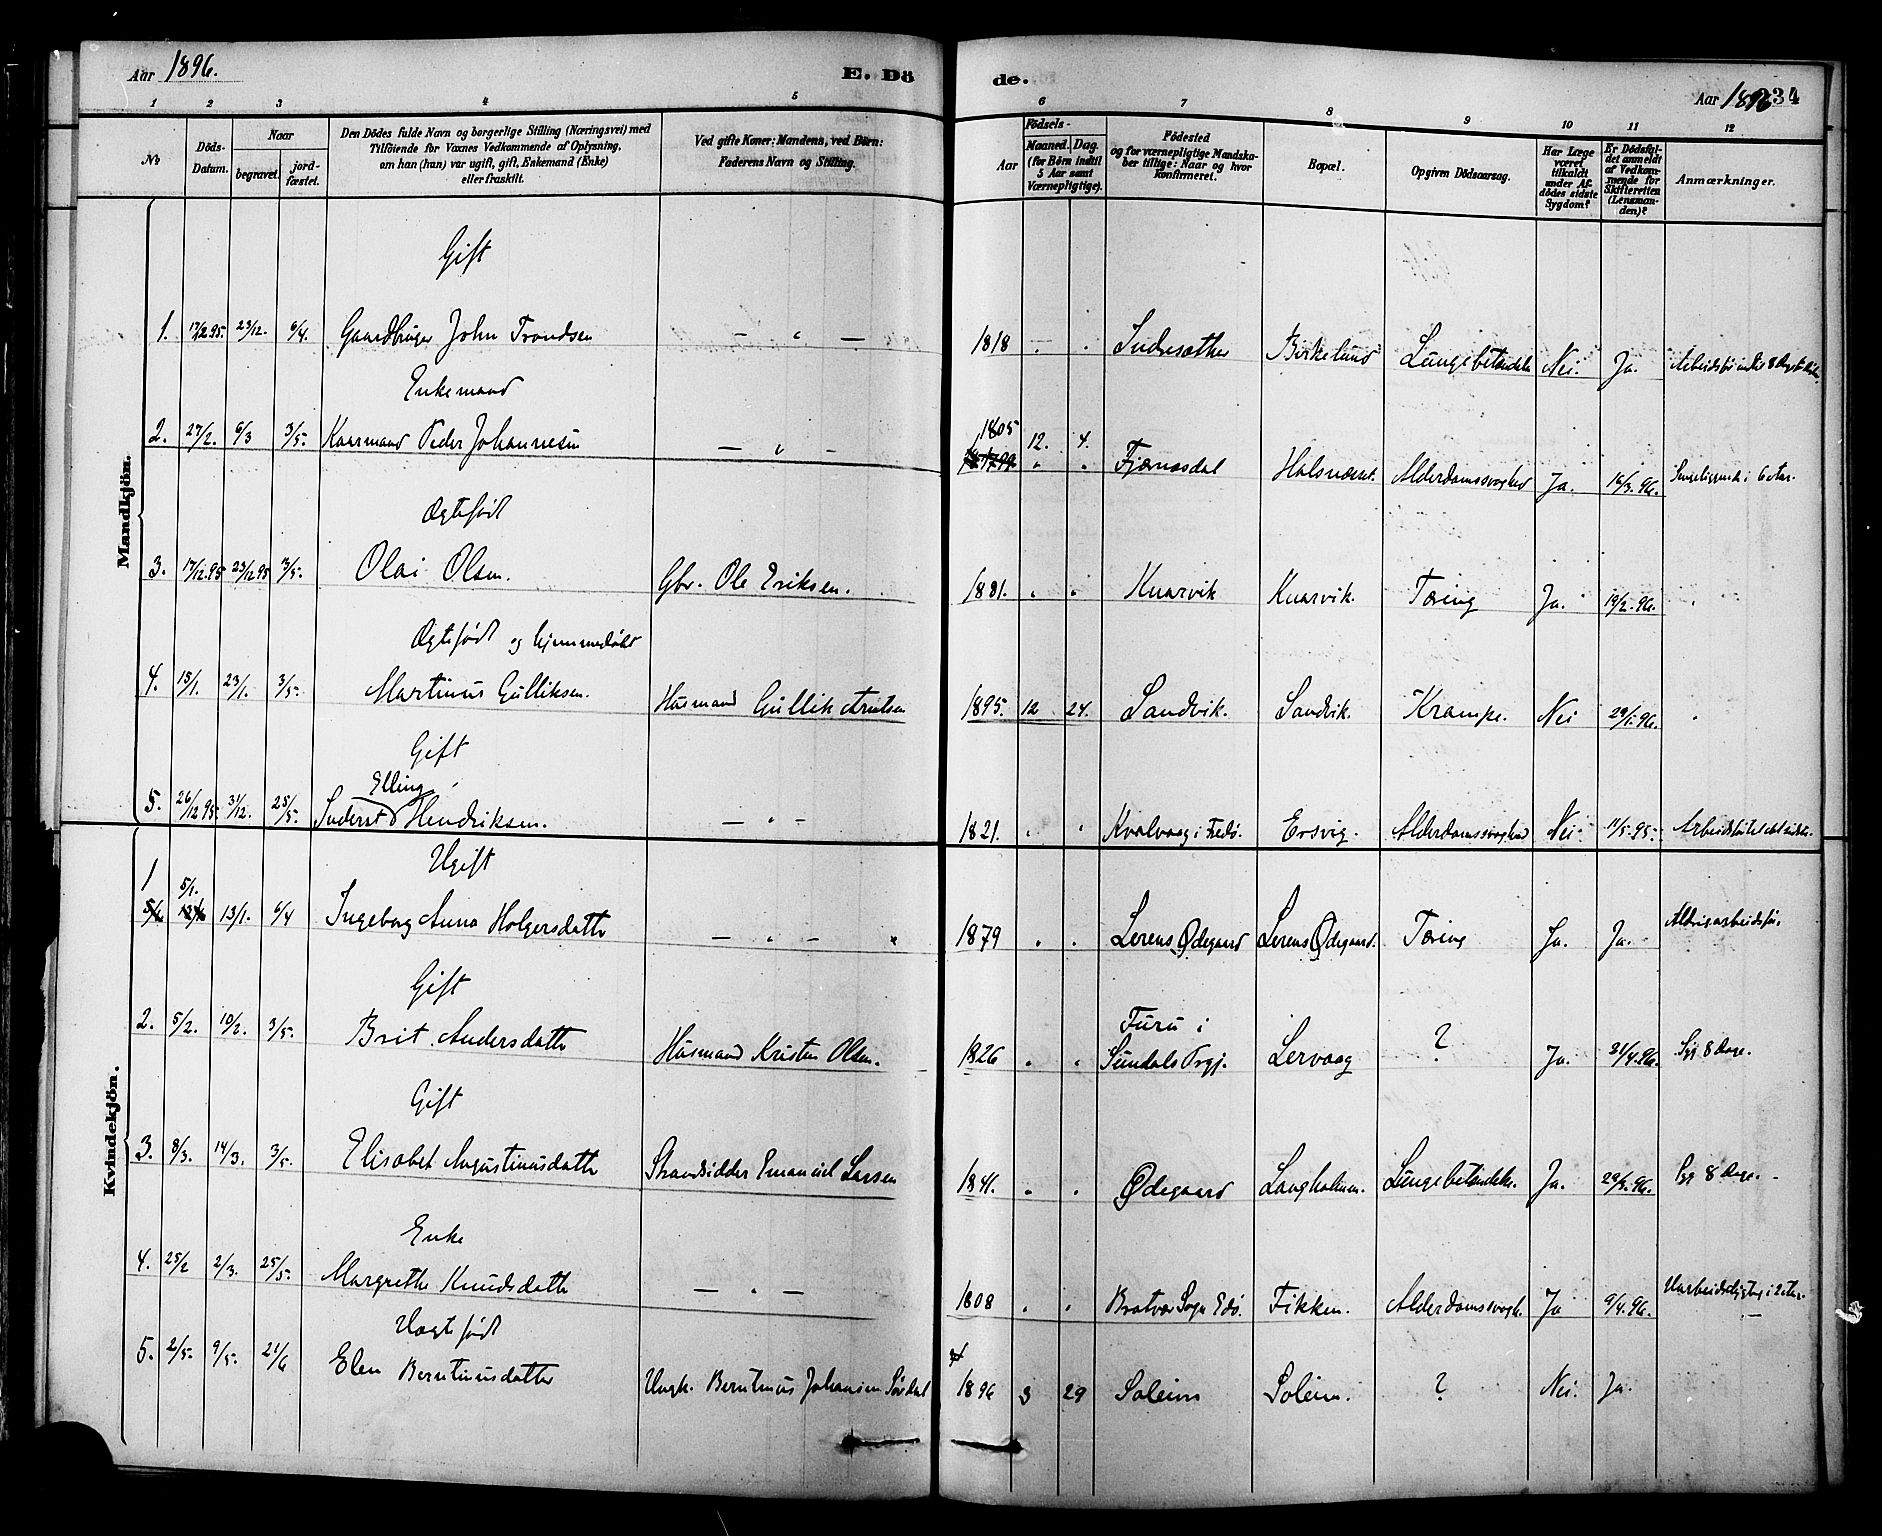 Aar 1896.
E. Dö
de.
Aar 1896
234
1 2 3 4 5 6 7 8 9 10 11 12
No
Döds-Datum.
Naar
begravet.
jordfæstet.
Den Dödes fulde Navn og borgerlige Stilling (Næringsvei) med
Tilföiende for Voxnes Vedkommende af Oplysning,
om han (hun) var ugift, gift, Enkemand (Enke)
eller fraskilt.
Ved gifte Koner: Mandens, ved Börn:
Faderens Navn og Stilling.
Födsels-
Aar
Maaned. Dag.
(for Börn indtil
5 Aar samt
Værnepligtige).
Födested
og for værnepligtige Mandskaber tillige: Naar og hvor
konfirmeret.
Bopæl.
Opgiven Dödsaarsag.
Har Læge
været
tilkaldt
under Afdödes sidste
Sygdom?
Er Dödsfaldet anmeldt
af Vedkommende for
Skifteretten
(Lensmanden)?
Anmærkninger.
Mandkjön.
Gift
1. 17/12 95. 23/12. 6/4. Gaardbruger John Trondsen — " — 1818 " " Indresæther Birkelund Lungebetændelse Nei. Ja.
Enkemand
2. 27/2. 6/3 3/5. Kaarmand Peder Johannesen — " — 1805 12. 4. Fjærnesdal Halsnæset. Alderdomssvaghed Ja. 16/3. 96. Sengeliggende i 6 Aar.
Ægtefødt
3. 17/12 95 23/12 95 3/5. Olai Olsen. Gbr. Ole Eriksen. 1881. " " Knarvik Knarvik. Tæring Ja. 19/2. 96. "
Ægtefødt og hjemmedøbt
4. 15/1. 23/1. 3/5. Martinus Gulliksen. Husmand Gullik Arntsen 1895. 12 24. Sandvik. Sandvik. Krampe. Nei 29/1. 96. "
Gift
Elling
5. 26/12 95. 31/12. 25/5. Inderst Hendriksen. — " — 1821. " " Kvalvaag i Fredø. Ersvig. Alderdomssvaghed Nei 11/5. 95.
Kvindekjön.
Ugift
1 5/1. 13/1. 6/4 Ingeborg Anna Holgersdatter — " — " 1879 " " Lerens Ødegaard Lerens Ødegaard. Tæring Ja. Ja. Aldrig arbeidsfør.
Gift
2. 5/2. 10/2. 3/5. Brit Andersdatter Husmand Kristen Olsen. 1826 " " Furu i
Sundals Prgj. Lervaag ? Ja. 21/4. 96. Syg 8 Dage.
Gift
3. 8/3. 14/3. 3/5. Elisabet Augustinusdatter Strandsidder Emanuel Larsen 1841. " " Ødegaard Langholmen. Lungebetændelse. Ja. 29/3. 96. Syg 8 Dage.
Enke
4. 25/2 2/3. 25/5. Margrethe Knudsdatter — " — 1808 " " Bratvær Sogn Edø. Fikken. Alderdomssvagh. Ja 9/4. 96.
Uægtefødt
5. 2/5. 9/5. 21/6 Elen Berntinusdatter Ungk. Berntinus Johansen Sørdal 1896 3 29 Soleim Soleim. ? Nei. Ja.